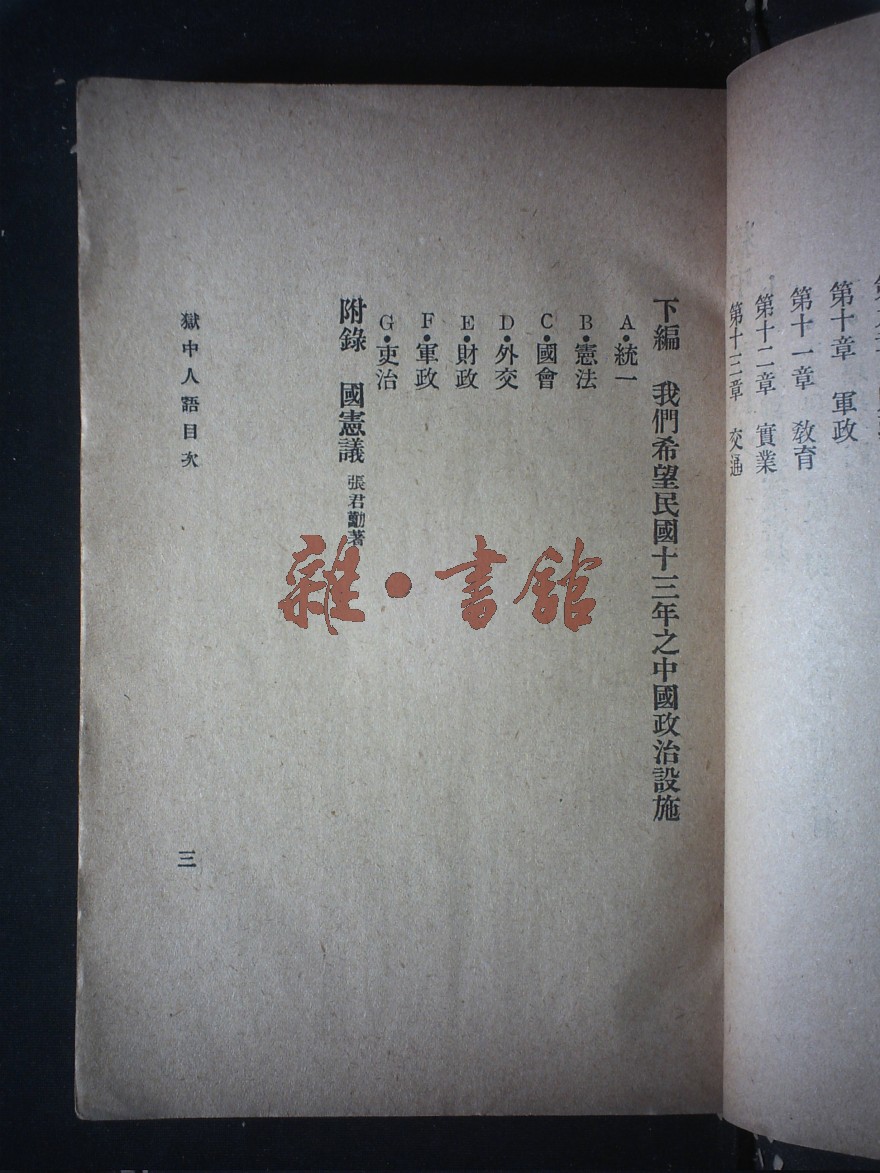 第十章　軍政
第十一章　敎育
第十二章　實業
第十三章　交通
下編　我們希望民國十三年之中國政治設施
A・統一
B・憲法
C・國會
D・外交
E・財政
F・軍政
G・吏治
附錄　國憲議　張君勱著
獄中人語目次
三
雜・書館